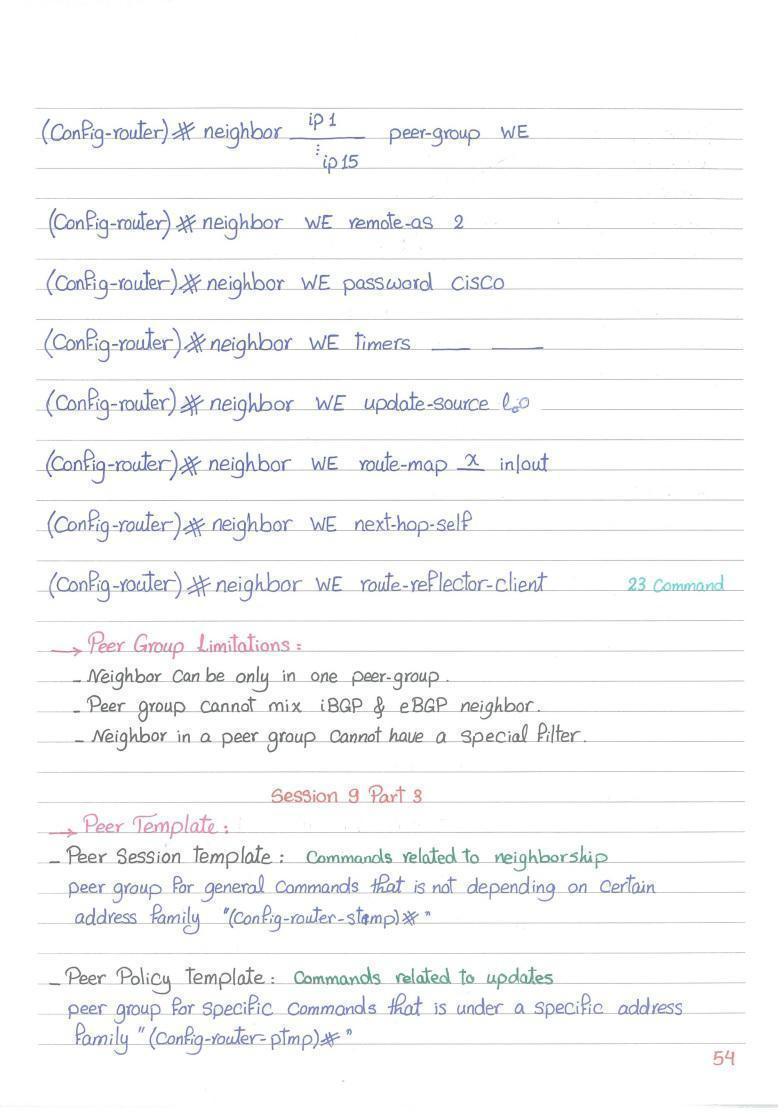 (Config-router)# neighbor ip 1 peer-group WE
⋮ ip 15
(Config-router)# neighbor WE remote-as 2
(Config-router)# neighbor WE password cisco
(Config-router)# neighbor WE timers ___ ___
(Config-router)# neighbor WE update-source lo0
(Config-router)# neighbor WE route-map x in/out
(Config-router)# neighbor WE next-hop-self
(Config-router)# neighbor WE route-reflector-client 23 Command
→ Peer Group Limitations :
- Neighbor can be only in one peer-group.
- Peer group cannot mix iBGP & eBGP neighbor.
- Neighbor in a peer group cannot have a special filter.
Session 9 Part 3
→ Peer Template :
- Peer Session template : Commands related to neighborship
peer group for general commands that is not depending on certain
address family "(Config-router-stmp)#"
- Peer Policy template : Commands related to updates
peer group for specific commands that is under a specific address
family "(Config-router-ptmp)#"
54